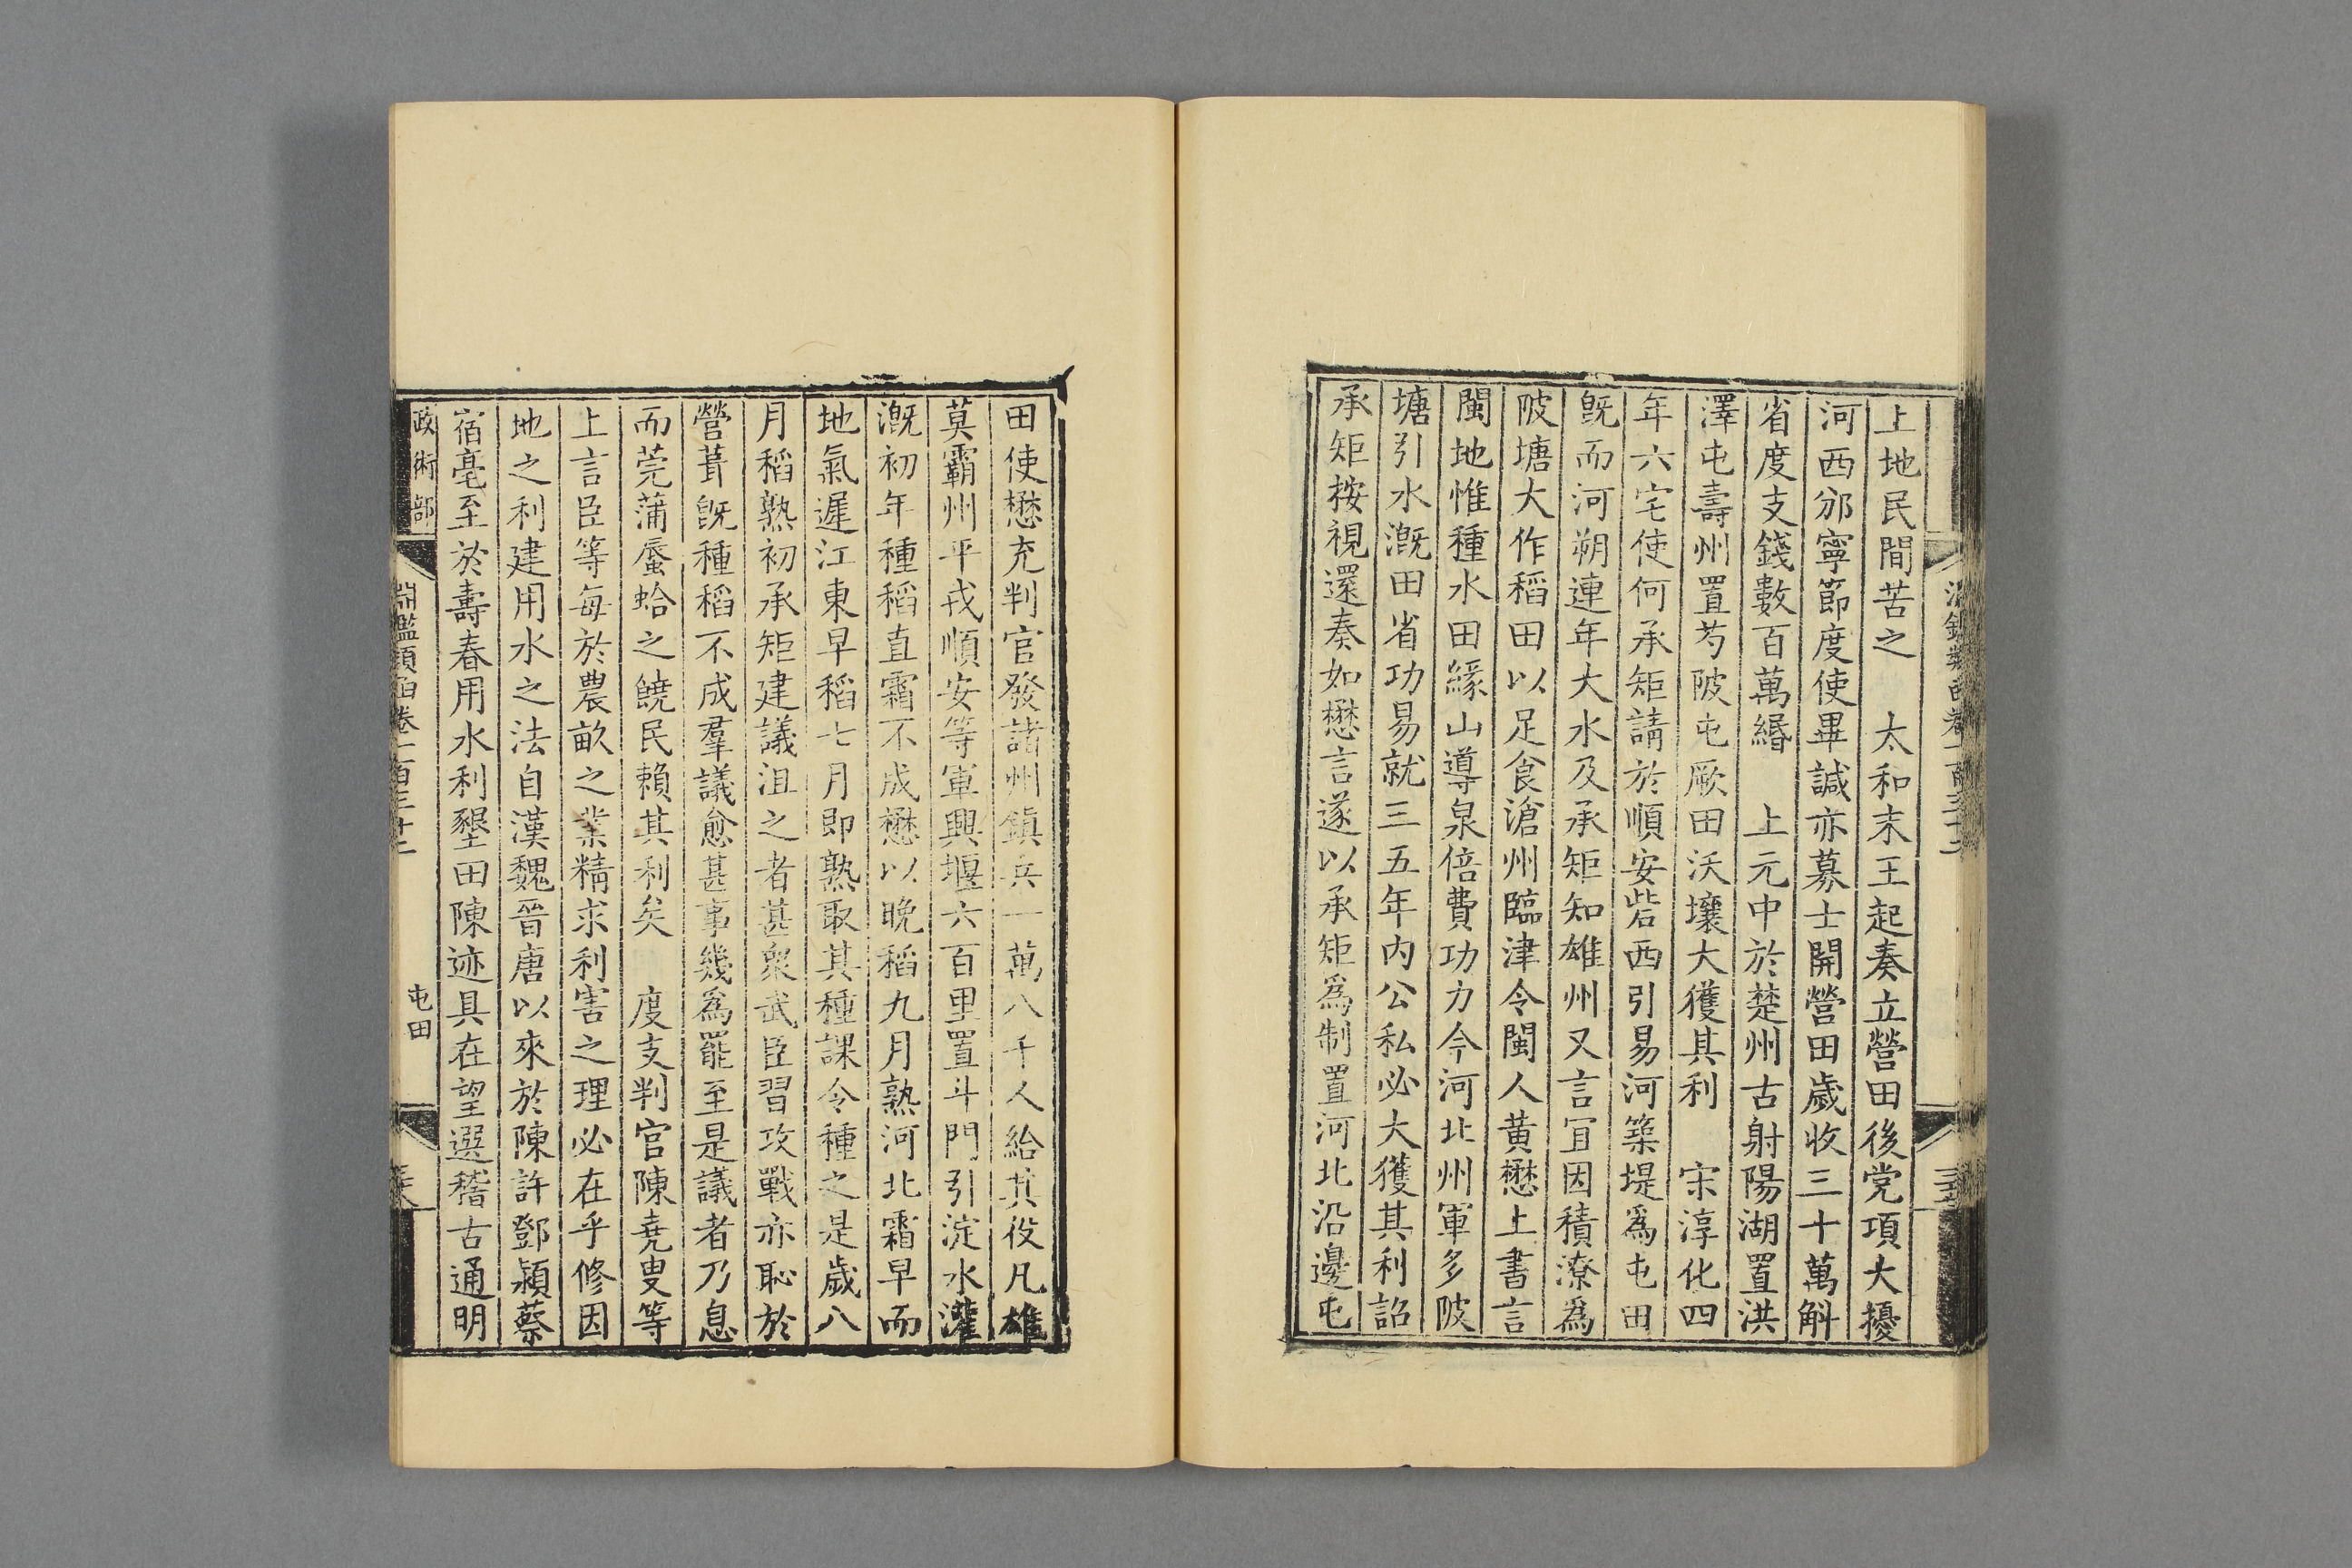 上地民間苦之　太和末王起奏立營田後党項大擾
河西邠寧節度使畢諴亦募士開營田歲收三十萬斛
省度支錢數百萬緡　上元中於楚州古射陽湖置洪
澤屯壽州置芍陂屯厥田沃壤大獲其利　宋淳化四
年六宅使何承矩請於順安砦西引易河築堤為屯田
既而河朔連年大水及承矩知雄州又言宜因積潦為
陂塘大作稻田以足食滄州臨津令閩人黃懋上書言
閩地惟種水田緣山導泉倍費功力今河北州軍多陂
塘引水溉田省功易就三五年內公私必大獲其利詔
承矩按視還奏如懋言遂以承矩為制置河北沿邊屯
田使懋充判官發諸州鎮兵一萬八千人給其役凡雄
莫霸州平戎順安等軍興堰六百里置斗門引淀水灌
溉初年種稻直霜不成懋以晚稻九月熟河北霜早而
地氣遲江東早稻七月即熟取其種課令種之是歲八
月稻熟初承矩建議沮之者甚衆武臣習攻戰亦恥於
營葺既種稻不成羣議愈甚事幾為罷至是議者乃息
而莞蒲蜃蛤之饒民賴其利矣　度支判官陳堯叟等
上言臣等每於農畝之業精求利害之理必在乎修因
地之利建用水之法自漢魏晉唐以來於陳許鄧潁蔡
宿亳至於壽春用水利墾田陳迹具在望選稽古通明
政術部　淵鑑類函卷一百三十二　屯田